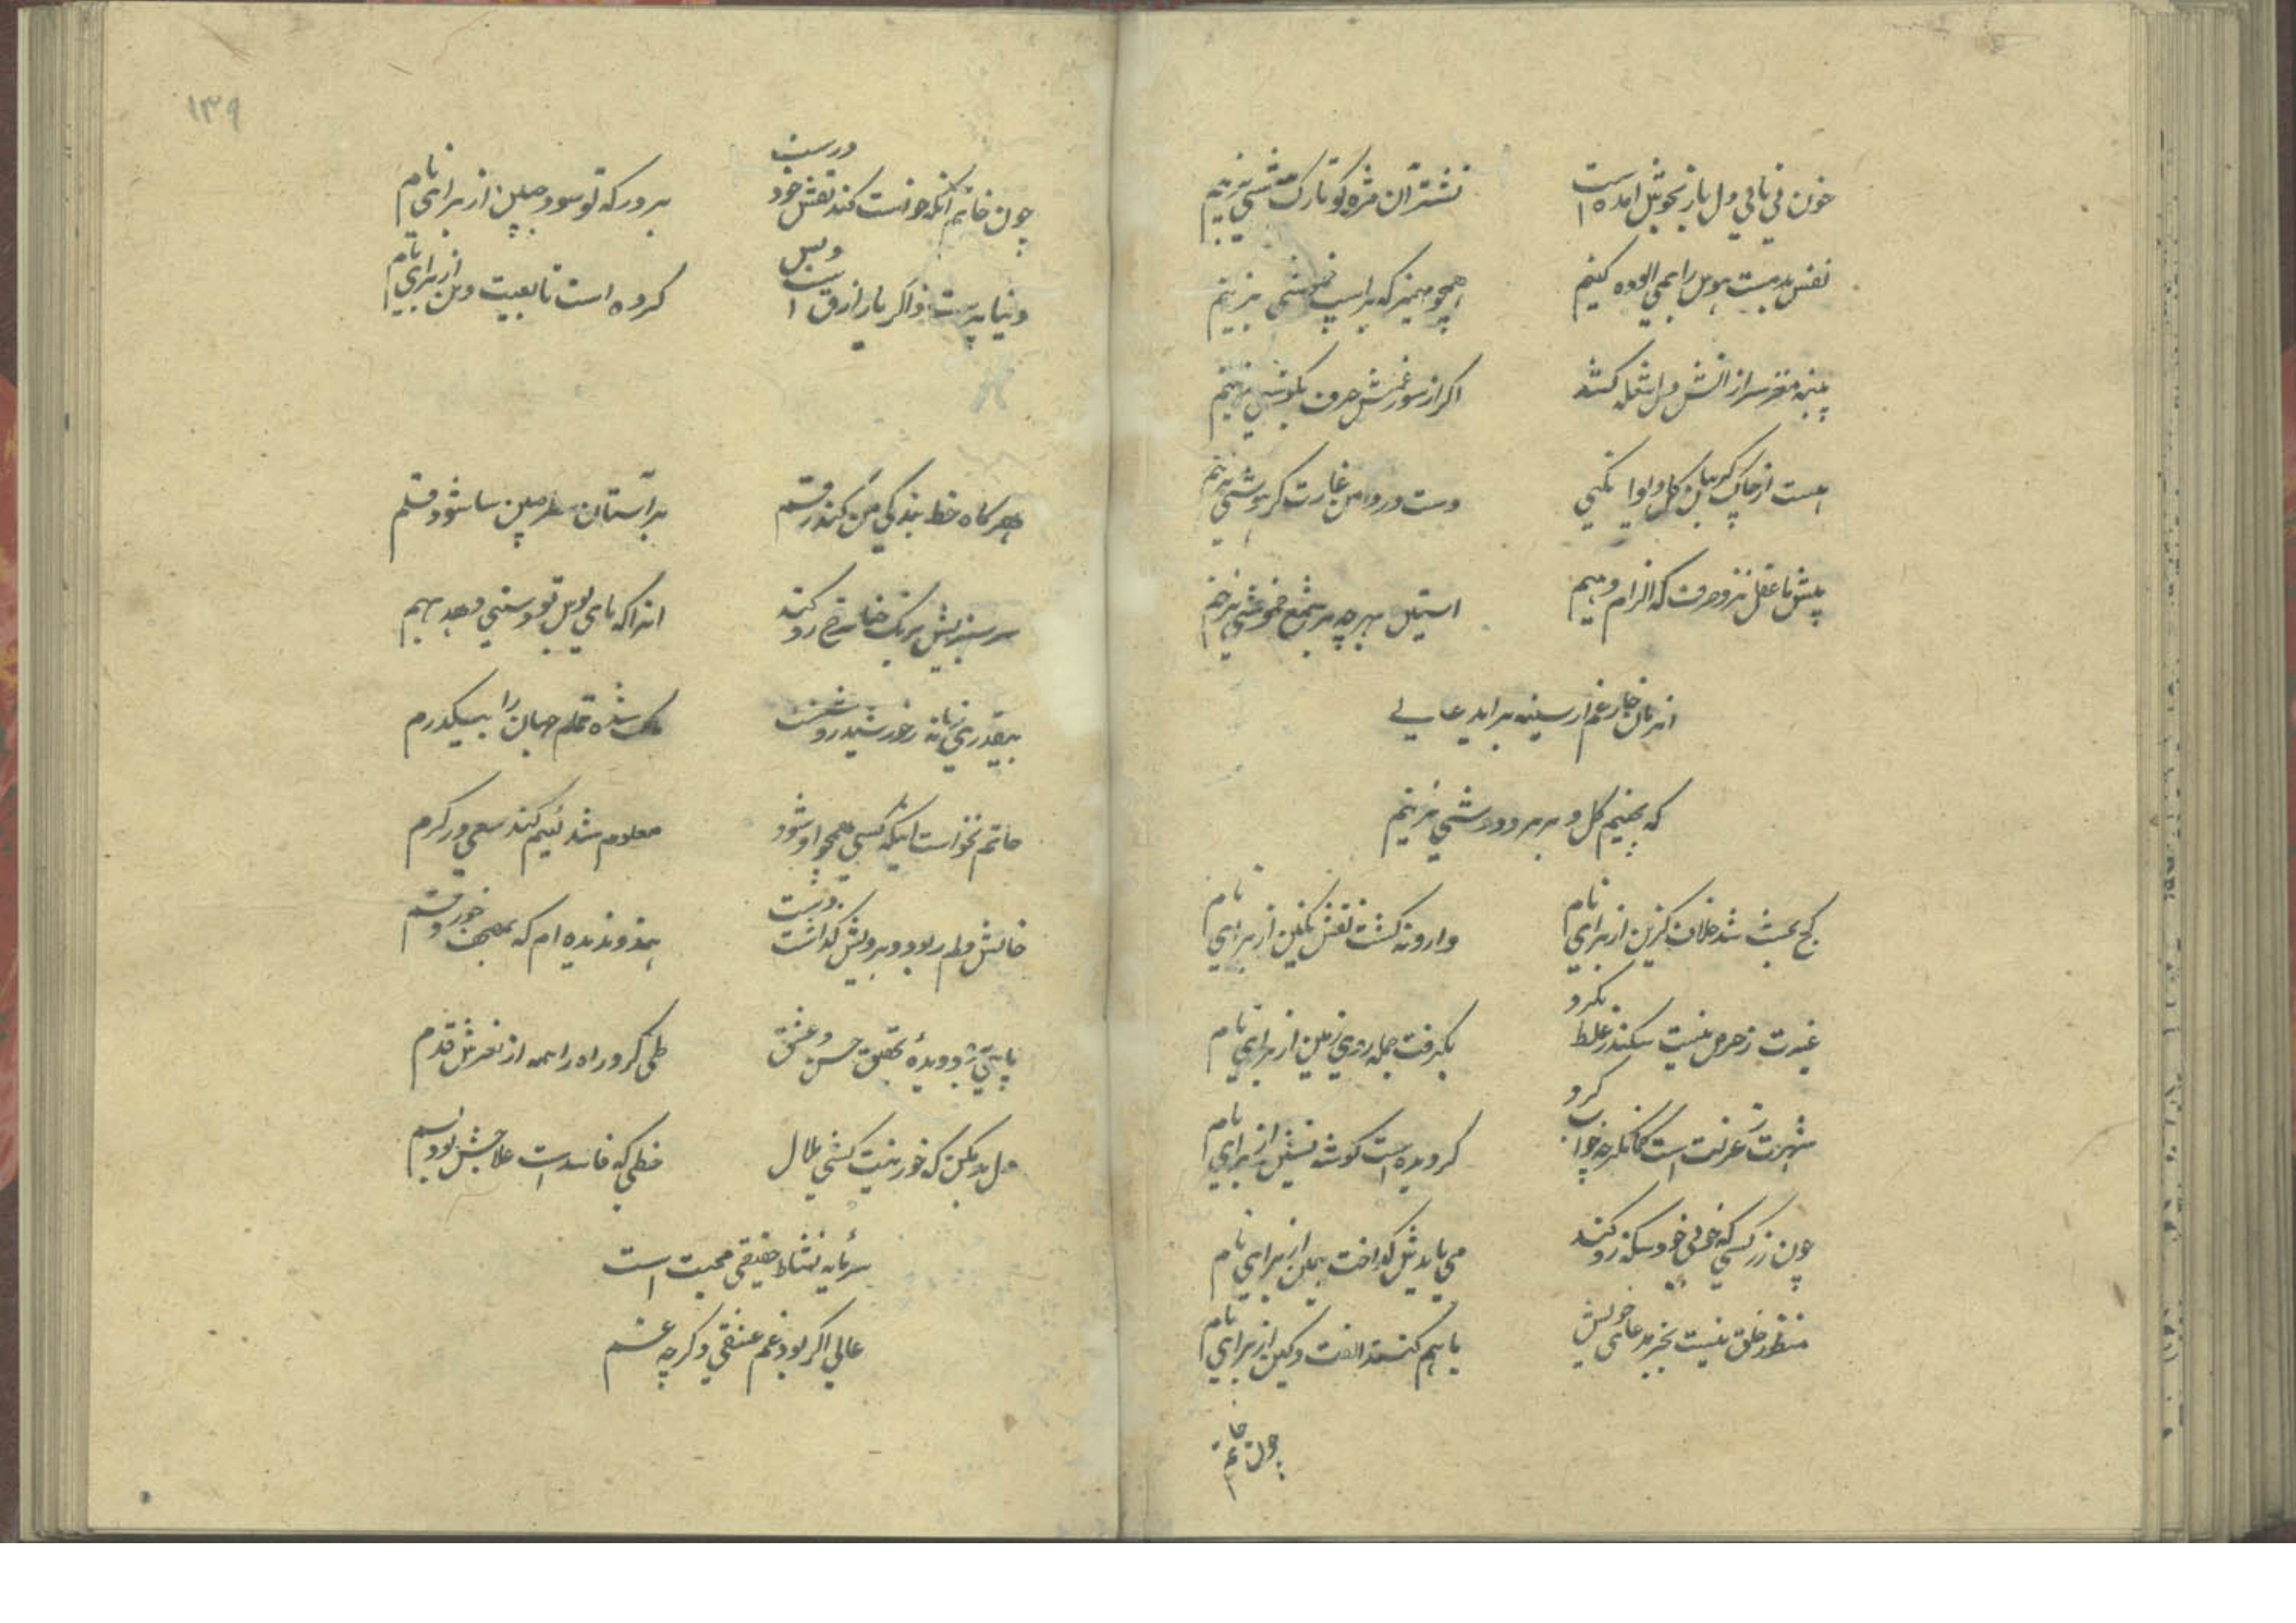 خون فی باقی دل باز بجوش امده است
نشتر آن مژه کو تا رک نیشی بزنیم
نفس بدمست هوس را همی الوده کنیم
همچو مهمیز که بر اسپ بزنیم
پنبه مغز سر از اتش دل شعله کشد
اکر از سوز غمش حرف بکوشی بزنیم
است از چاک کریبان کل
دست در دامن غارت کر هوشی بزنیم
پیش ما عقل نزد حرف که الزام دهیم
بر شمع خموشی بزنیم
خار غم از سینه براید عالی
که بچینیم کل و بر سر
کج بحث شد خلاف کزین از برای نام
وارونه کشت نقش نکین از برای نام
غیرت ز حرص نیست سکندر غلط نکرد
بکرفت جمله روی زمین از برای نام
شهرت ز عزلت است کمانکر چه خواب کرد
کردیده است کوشه نشین از برای نام
چون زر کسی که خوبی خود سکه رو کند
می بایدش کداخت از برای نام
منظور خلق نیست بجز مدعای خویش
با هم کنند الفت و کین از برای نام
چون خاتم
۱۳۹
چون خاتم انکه خواست کند نقش خود درست
بر در که تو سود جبین از برای نام
دنیا پرست ذاکر یا رازق است و بس
کرده است تابعیت دین از برای نام
هر کاه خط بندکی من کند رقم
بر آستان سطر جبین سا شود قلم
سر سبز بیش برنک حنا سرخ رو کند
انرا که پای بوس تو دستی دهد بهم
بیقدری زمانه ز خورشید روشنست
شده تمام جهان را بیکدرم
حاتم نخواست اینکه کسی همچو او شود
معلوم شد لئیم کند سعی در کرم
خالش دلم ربود و برویش کذاشت
هندو ندیده ام که بمصحف خورد قسم
دیده تحقیق حسن و عشق
طی کرد راه را همه از لغزش قدم
دل بد مکن که خوب نیست کشی ملال
خطی که فاسد است علاجش بود بسم
سرمایه نشاط حقیقی محبت است
عالی اکر بود غم عشقی دکر چه غم